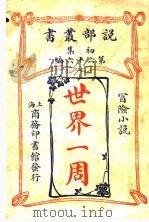 説部叢書
初集
第 六 編
冒險小說
世界一周
上海
商務印書館發行